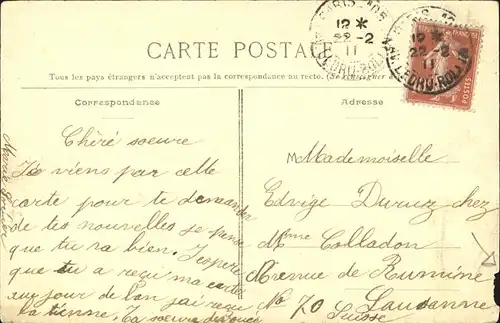 PARIS-105
12 *
22-2
11
AV. LEDRU-ROLLIN
12 *
22-2
11
AV. LEDRU-ROLLIN
POSTES
CARTE POSTALE
Tous les pays étrangers n'acceptent pas la correspondance au recto. (Se renseigner
Correspondance
Adresse
Chéré soeure
Je viens par cette
carte pour te demander
de tes nouvelles je pense
que tu va bien. J'espère
que tu a reçu ma carte
au jour de l'an j'ai reçu
la tienne. Ta soeure
Mademoiselle
Edvige Duruz chez
Mme Colladon
Avenue de Rumine
No 70 Lausanne
Suisse